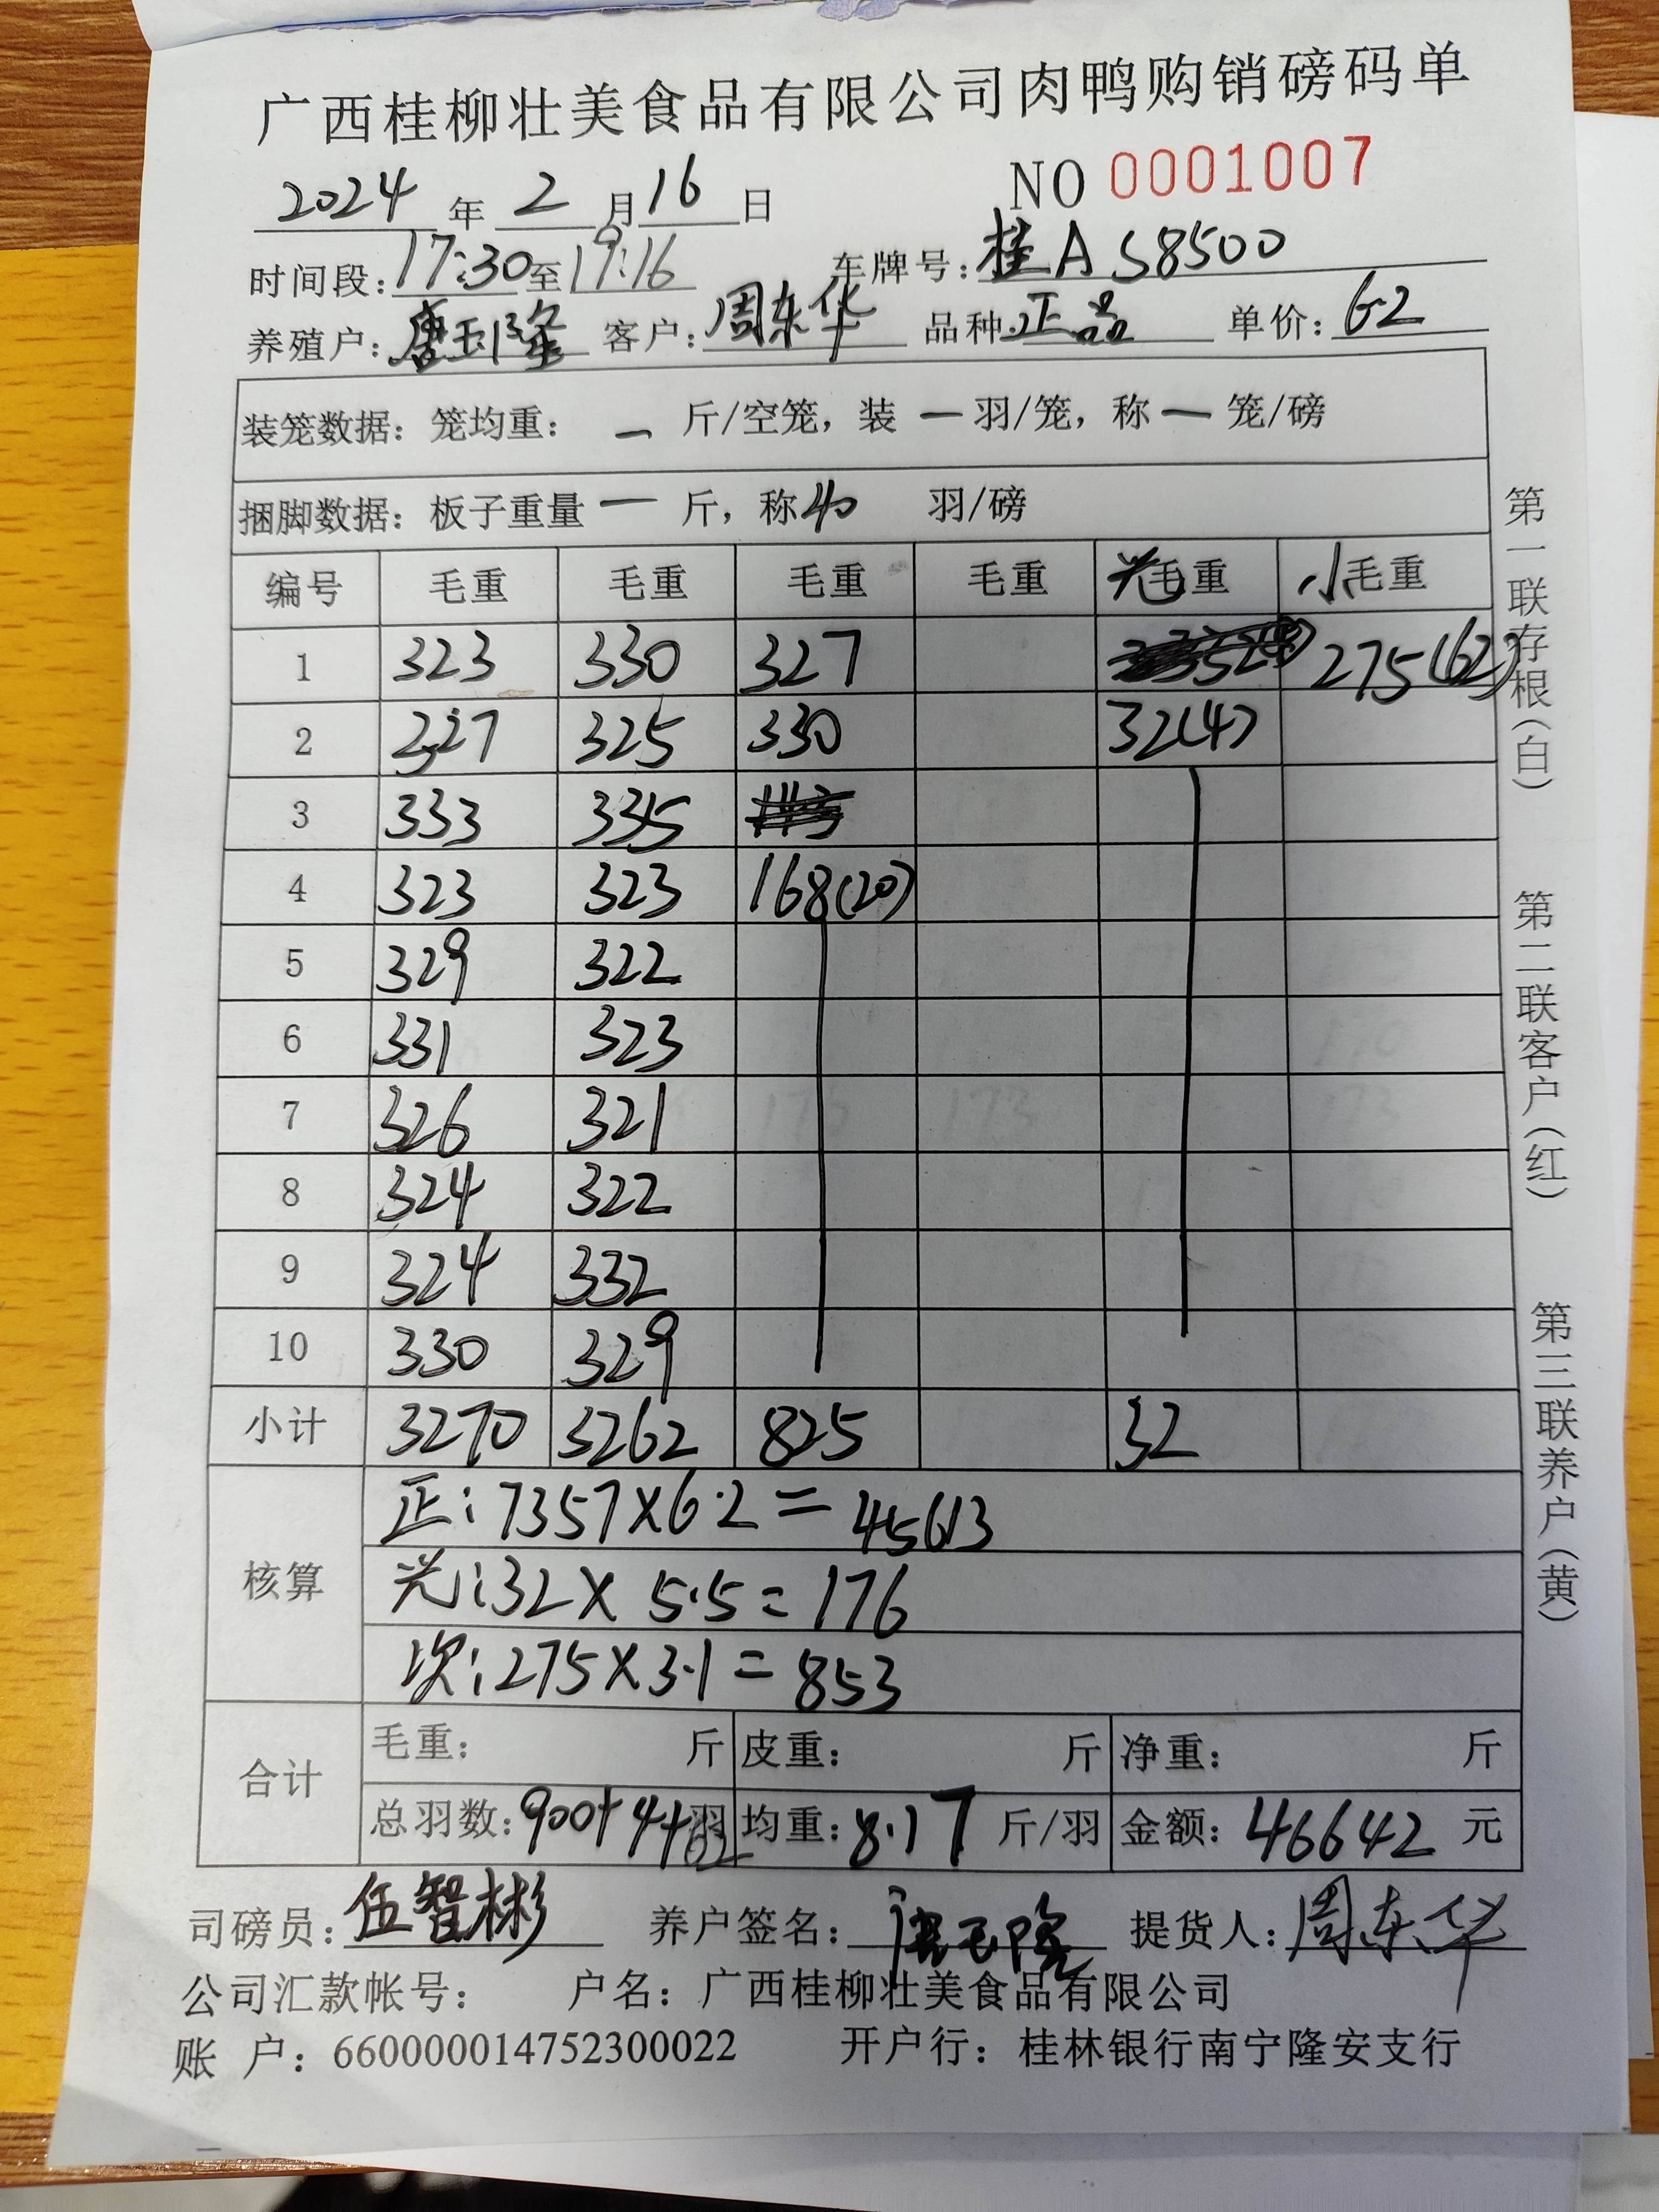 广西桂柳壮美食品有限公司肉鸭购销磅码单
2024年2月16日 NO 0001007
时间段:17:30至19:16 车牌号:桂A S8500
养殖户:唐玉隆 客户:周东华 品种:正品 单价:6.2
装笼数据:笼均重: — 斤/空笼,装 — 羽/笼,称 — 笼/磅
捆脚数据:板子重量 — 斤,称 40 羽/磅
编号 毛重 毛重 毛重 毛重 光毛重 小毛重
1 323 330 327 275(62)
2 327 325 330 32(4)
3 333 335
4 323 323 168(20)
5 329 322
6 331 323
7 326 321
8 324 322
9 324 332
10 330 329
小计 3270 3262 825 32
核算 正:7357×6.2=45613
光:32×5.5=176
次:275×3.1=853
合计 毛重: 斤 皮重: 斤 净重: 斤
总羽数:900+4+62羽 均重:8.17斤/羽 金额:46642元
司磅员:伍智彬 养户签名:唐玉隆 提货人:周东华
公司汇款帐号: 户名:广西桂柳壮美食品有限公司
账 户:660000014752300022 开户行:桂林银行南宁隆安支行
第一联存根(白)
第二联客户(红)
第三联养户(黄)